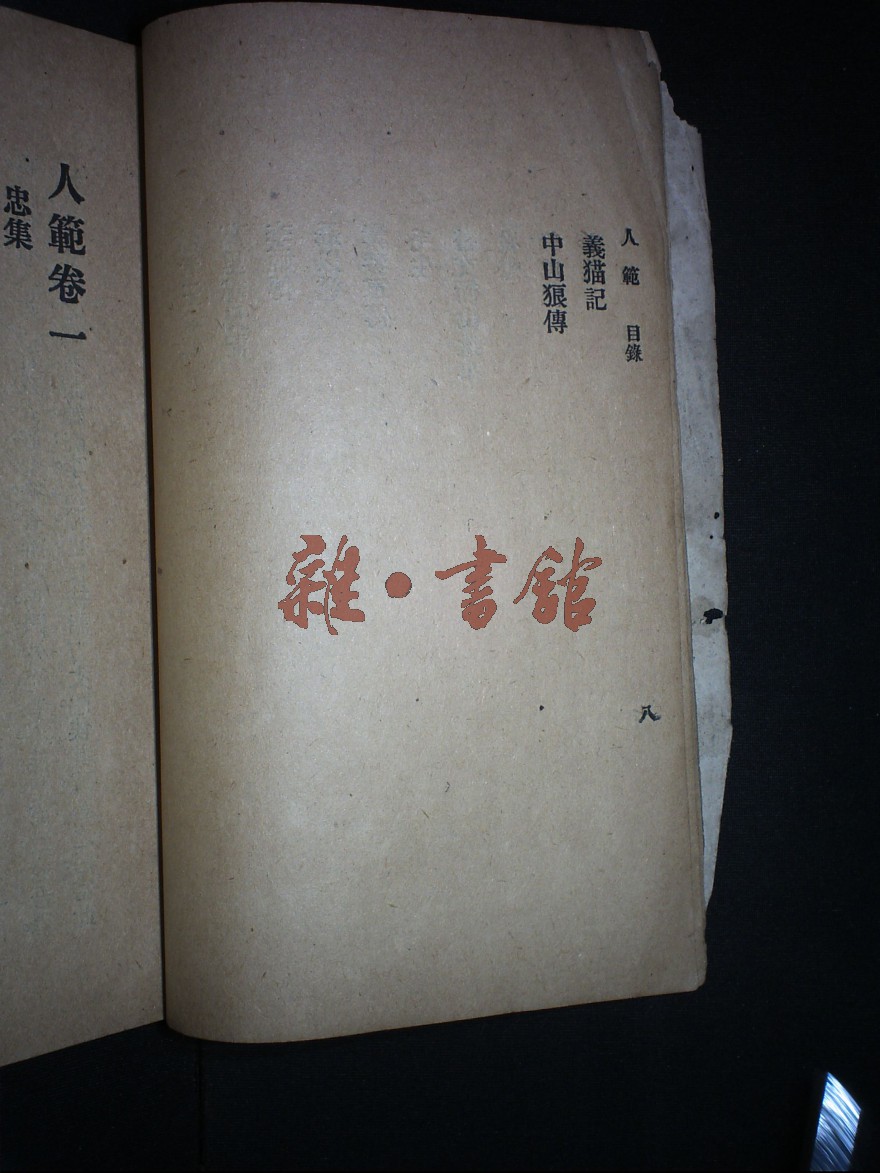 人範 目錄
義猫記
中山狼傳
八
雜·書館
人範卷一
忠集